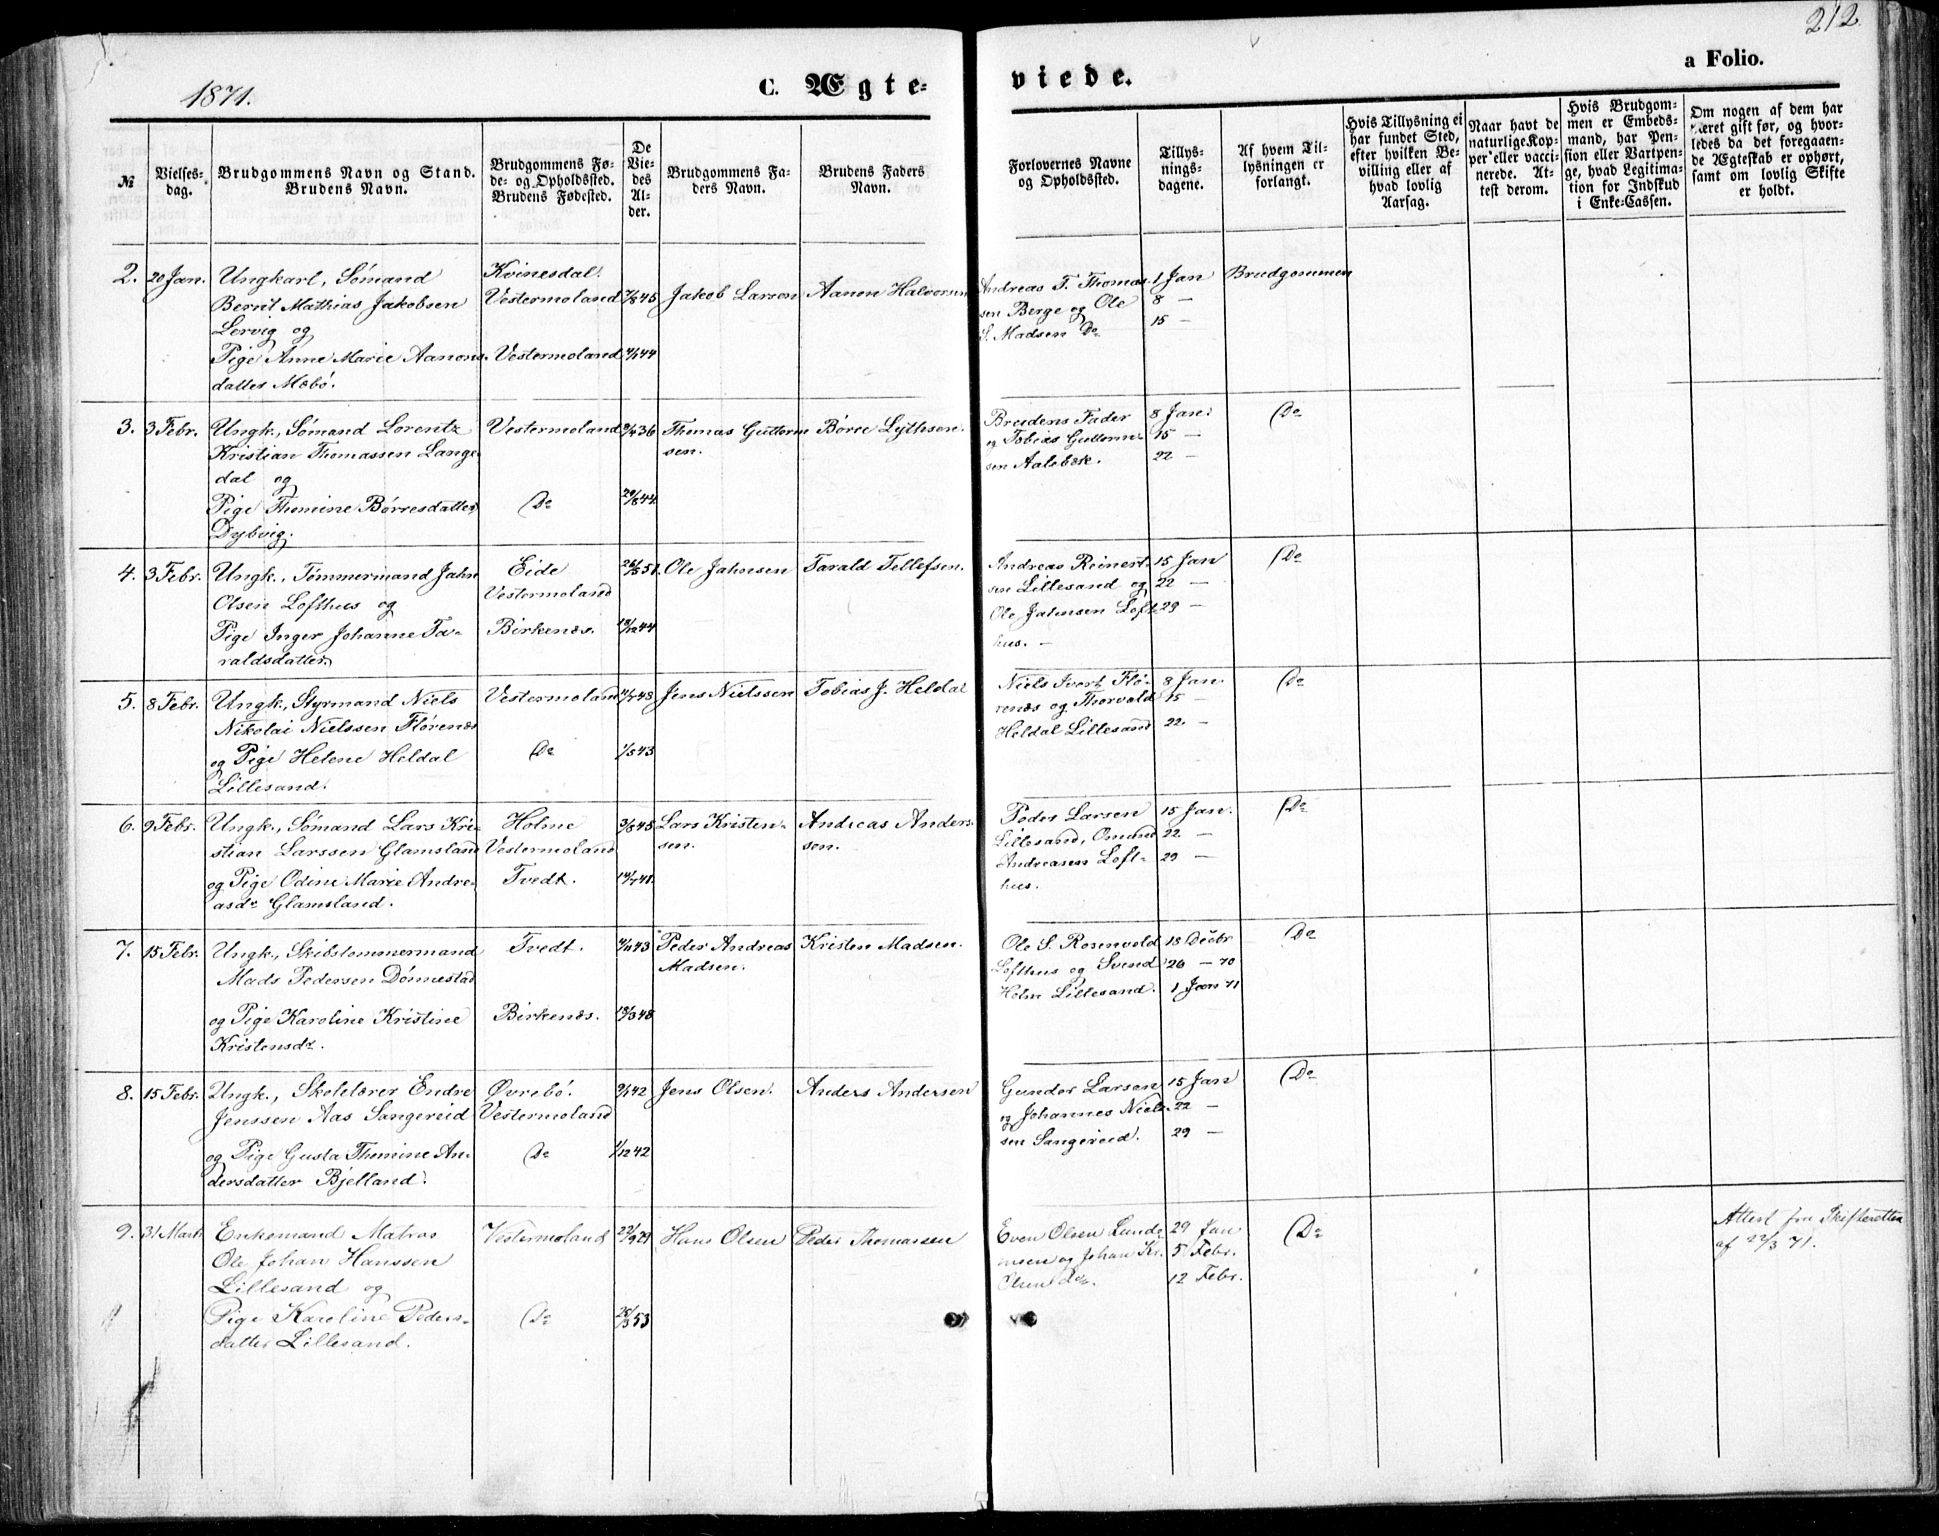 212.
1871.
C. Ægte-
viede.
a Folio.
№
Vielses-
dag.
Brudgommens Navn og Stand.
Brudens Navn.
Brudgommens Fø-
de- og Opholdssted.
Brudens Fødested.
De
Vie-
des
Al-
der.
Brudgommens Fa-
ders Navn.
Brudens Faders
Navn.
Forlovernes Navne
og Opholdssted.
Tillys-
nings-
dagene.
Af hvem Til-
lysningen er
forlangt.
Hvis Tillysning ei
har fundet Sted,
efter hvilken Be-
villing eller af
hvad lovlig
Aarsag.
Naar havt de
naturlige Kop-
per eller vacci-
nerede. At-
test derom.
Hvis Brudgom-
men er Embeds-
mand, har Pen-
sion eller Vartpen-
ge, hvad Legitima-
tion for Indskud
i Enke-Cassen.
Om nogen af dem har
været gift før, og hvor-
ledes da det foregaaen-
de Ægteskab er ophørt,
samt om lovlig Skifte
er holdt.
2. 20 Jan. Ungkarl, Sømand
Bernt Mathias Jakobsen
Lervig og
Pige Anne Marie Aanons-
datter Mæbø.
Kvinesdal.
Vestermoland
Vestermoland
7/8 45
4/1 44
Jakob Larsen
Aanon Halvorsen
Andreas T. Thomas-
sen Berge og Ole
S. Madsen Do
1 Jan
8 —
15 —
Brudgommen
3. 3 Febr. Ungk., Sømand Lorentz
Kristian Thomassen Lange-
dal og
Pige Thomine Børresdatter
Dybvig.
Vestermoland
Do
9/4 36
29/8 44
Thomas Guttorm-
sen.
Børre Lythsen.
Brudens Fader
og Tobias Guttorm-
sen Aalebæk.
8 Jan.
15 —
22 —
Do
4. 3 Febr. Ungk., Tømmermand Jahn
Olsen Lofthus og
Pige Inger Johanne Ta-
raldsdatter
Eide
Vestermoland
Birkenæs.
26/5 51
18/12 44
Ole Jahnsen
Tarald Tellefsen.
Andreas Reinert-
sen Lillesand og
Ole Jahnsen Loft-
hus. —
15 Jan
22 —
29 —
Do
5. 8 Febr. Ungk., Styrmand Niels
Nikolai Nielssen Flørenæs
og Pige Helene Heldal
Lillesand.
Vestermoland
Do
4/7 48
1/5 43
Jens Nielssen
Tobias J. Heldal
Niels Ivert Flø-
renæs og Thorvald
Heldal Lillesand
8 Jan.
15 —
22. —
Do
6. 9 Febr. Ungk., Sømand Lars Kri-
stian Larssen Glamsland
og Pige Odine Marie Andre-
asdr Glamsland.
Holme
Vestermoland
Tvedt.
3/8 45
14/7 48.
Lars Kristen-
sen.
Andreas Anders-
sen.
Peder Larsen
Lillesand, Omund
Andreasen Loft-
hus.
15 Jan.
22 —
29 —
Do
7. 15 Febr. Ungk., Skibstømmermand
Mads Pedersen Dønnestad
og Pige Karoline Kristine
Kristensdr.
Tvedt.
Birkenæs.
4/11 43
18/3 48
Peder Andreas
Madsen.
Kristen Madsen.
Ole S. Rosenvold
Lofthus og Svend
Holm Lillesand.
18 Decbr
26 — 70
1 Jan 71
Do
8. 15 Febr. Ungk., Skolelærer Endre
Jenssen Aas Sangereid
og Pige Gusta Thomine An-
dersdatter Bjelland.
Øvrebø.
Vestermoland
Do
9/1 42
1/12 42
Jens Olsen.
Anders Andersen
Gunder Larsen
og Johannes Niels-
sen Sangereid.
15 Jan
22 —
29 —
Do
9. 31 Mart. Enkemand Matros
Ole Johan Hanssen
Lillesand og
Pige Karoline Peders-
datter Lillesand.
Vestermoland
Do
22/9 29
25/3 53
Hans Olsen
Peder Thomassen
Even Olsen Lunde-
og Johan Kr.
Olsen Do.
29 Jan
5 Febr.
12 Febr.
Do
Attest fra Skifteretten
af 22/3 71.